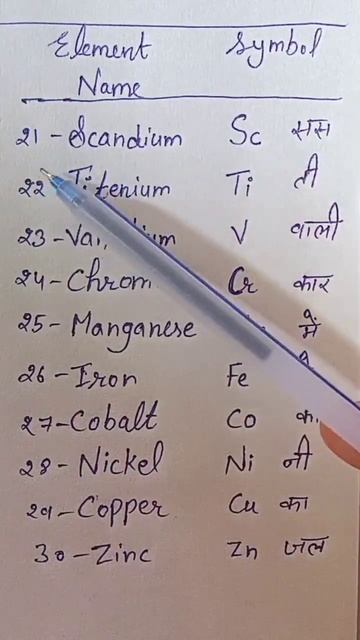 Element Symbol
Name
21 - Scandium Sc सस
22 Titenium Ti ती
23 - Va V वाली
24 - Chrom Cr कार
25 - Manganese में
26 - Iron Fe
27 - Cobalt Co
28 - Nickel Ni नी
29 - Copper Cu का
30 - Zinc Zn जल